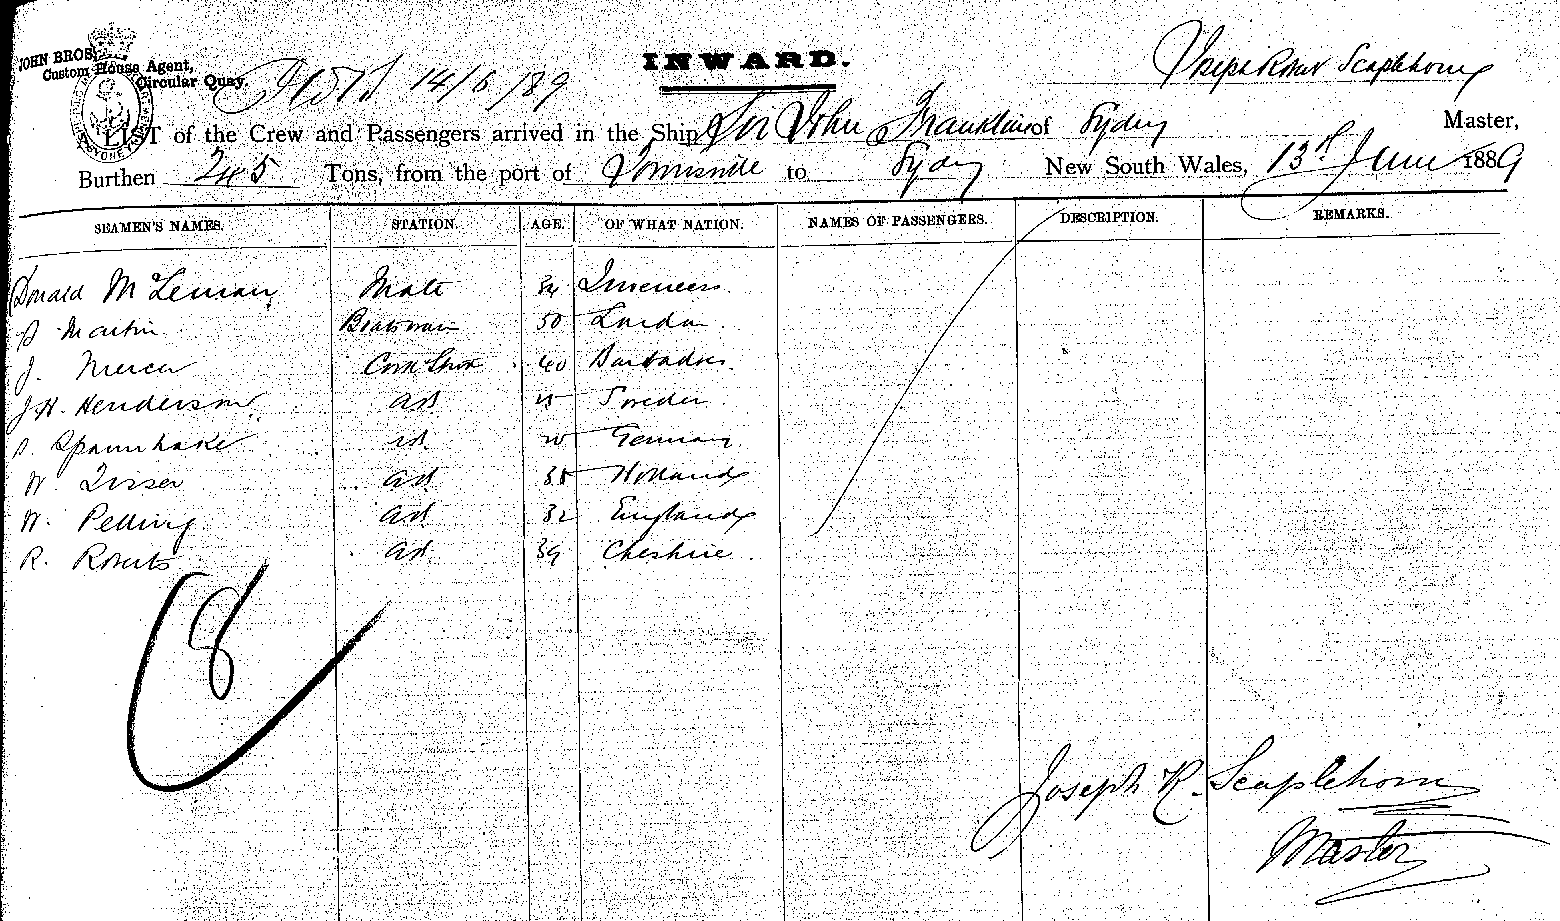 JOHN BROS.
Custom House Agent,
Circular Quay.
14/6/89
INWARD.
Joseph Robert Scaplehorn
LIST of the Crew and Passengers arrived in the Ship Sir John Franklin of Sydney Master,
Burthen 245 Tons, from the port of Townsville to Sydney New South Wales, 13th June 1889
SEAMEN'S NAMES. STATION. AGE. OF WHAT NATION. NAMES OF PASSENGERS. DESCRIPTION. REMARKS.
Donald McLennan Mate 34 Inverness
Martin Boatswain 50 London
J. Mercer Cook 40 Barbados
J.H. Henderson AB Sweden
Spannhake AB Germany
W. Visser AB 35 Holland
W. Pelling AB 32 England
R. Roberts AB 39 Cheshire
8
Joseph R. Scaplehorn
Master